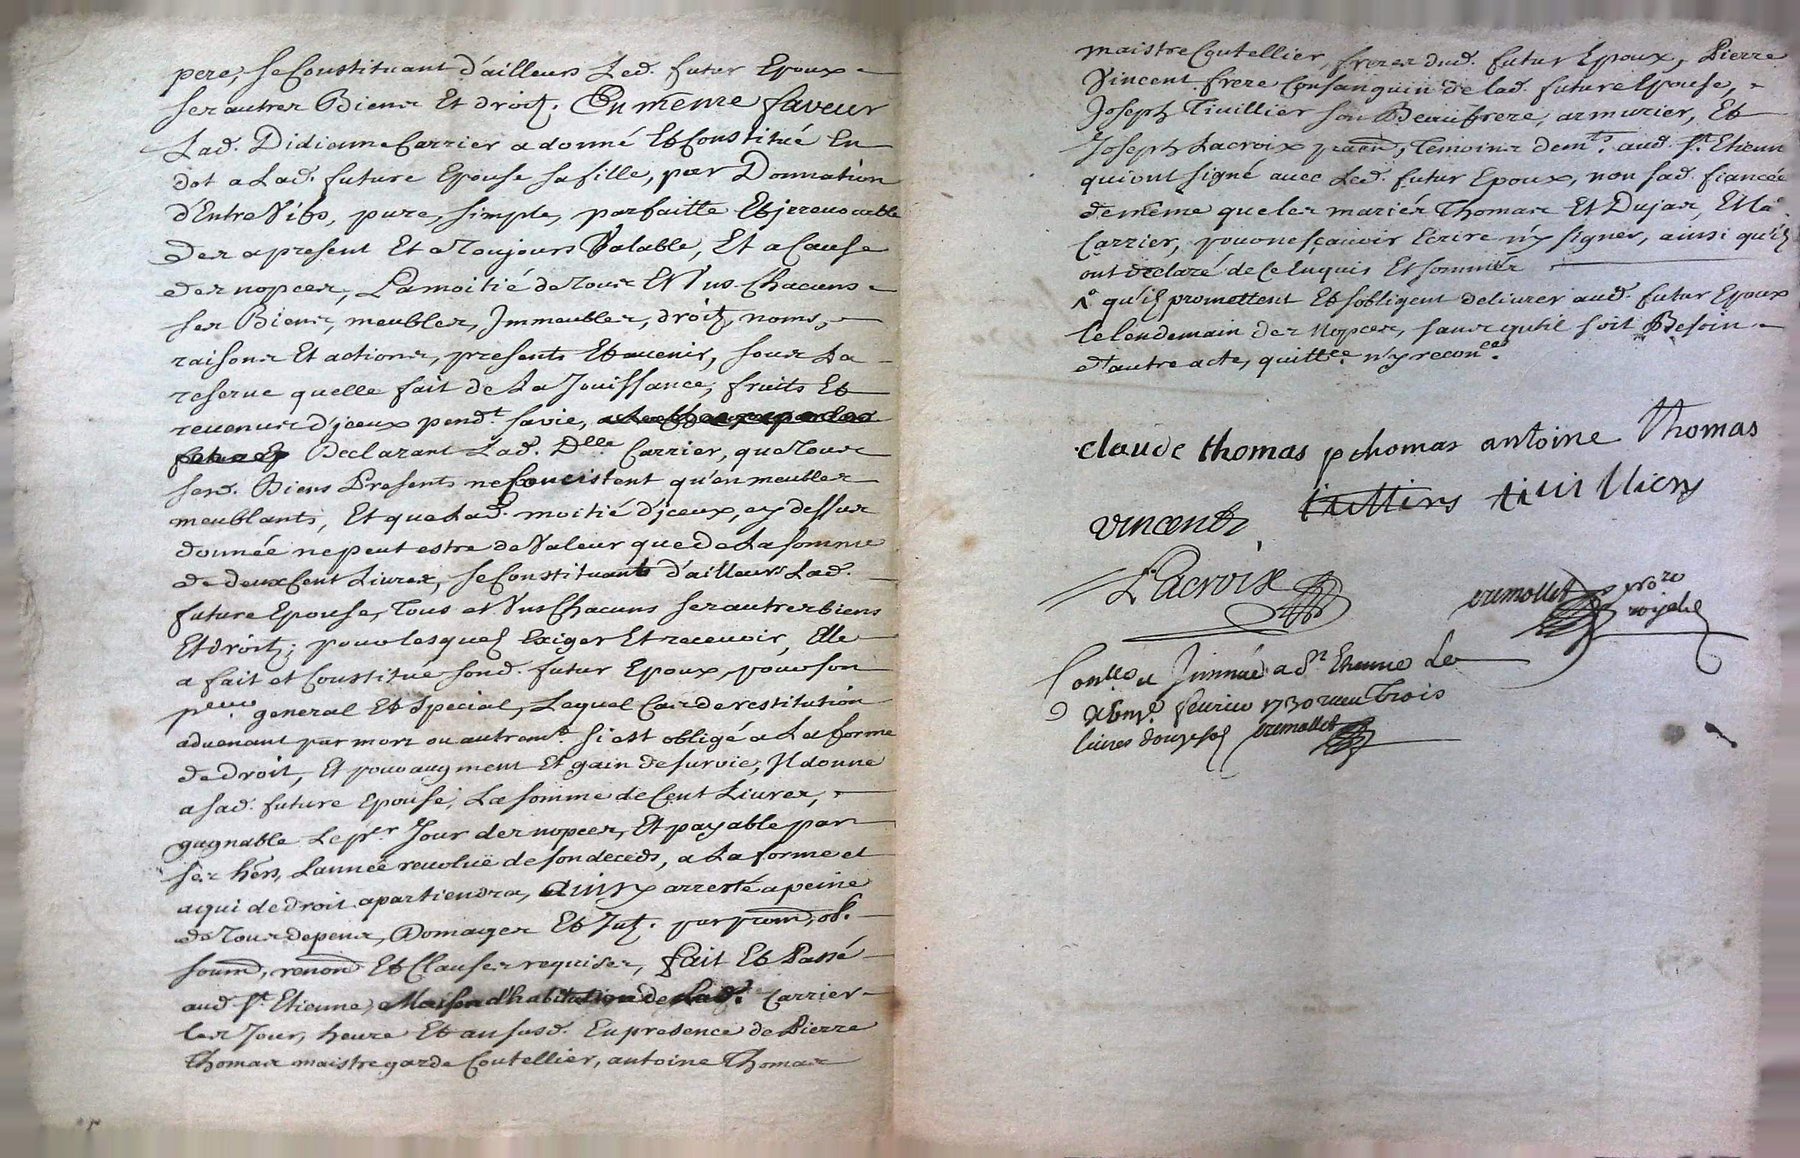 pere, se Constituant d'ailleurs Led. futur Epoux
ses autres Biens Et droitz. En même faveur
Lad. Didienne Carrier a donné Et Constitué En
dot a Lad. future Epouse sa fille, par Donnation
d'Entre Vifs, pure, simple, parfaitte Et jrrevocable
des a present Et a Toujours Valable, Et a Cause
des nopces, La moitié de Tous Et Uns Chacuns
ses Biens, meubles, Jmmeubles, droitz, noms,
raisons Et actions, presents Et avenir, sous La
reserve quelle fait de La Jouissance, fruits Et
revenus d'jceux pend.t sa vie,
Declarant Lad. D.lle Carrier, que Tous
sesd. Biens Presents ne Concistent qu'en meubles
meublants, Et que Lad. moitié d'jceux, cy dessus
donnée ne peut estre de Valeur que de La somme
de deux Cent Livres, se Constituant d'ailleurs Lad.
future Epouse, Tous et Uns Chacuns ses autres biens
Et droitz; pour lesquelz Exiger Et recevoir, Elle
a fait et Constitué sond. futur Epoux, pour son
general Et Special, Lequel Cas de restitution
advenant par mort ou autrem.t s'est obligé a La forme
de droit, Et pour augment Et gain de survie, Jl donne
a sad. future Epouse, La somme de Cent Livres,
gagnable Le p.r Jour des nopces, Et payable par
ses hers, L'année revolüe de son deceds, a La forme et
a qui de droit apartiendra, Ainsy arresté a peine
de Tous depens, Domages Et Jntz. par prom, ob.
soum, renon Et Clauses requises, fait Et Passé
aud. St. Etienne, Maison d'habitation de Lad. Carrier
les Jour, heure Et an susd. En presence de Pierre
Thomas maistre garde Coutellier, antoine Thomas
maistre Coutellier, freres dud. futur Epoux, Pierre
Vincent frere Consanguin de lad. future Epouse,
Joseph Tivillier son Beaufrere, armurier, Et
Joseph Lacroix Temoins dem.ts aud. St. Etienne
qui ont signé avec Led. futur Epoux, non sad. fiancée
de même que les mariés Thomas Et Dujas, Et la
Carrier, pour ne sçavoir Ecrire n'y signer, ainsi qu'ilz
ont declaré de Ce Enquis Et sommés
qu'ilz promettent Et s'obligent delivrer aud. futur Epoux
le lendemain des Nopces, sans qu'il soit Besoin
d'autre acte, quitt.ce n'y recon.ces
claude thomas pthomas antoine Thomas
vincent tivilliers
Lacroix
no.re
royal
Con.lle Jnsinué a St. Etienne Le
fevrier 1730 receu Trois
livres douze solz